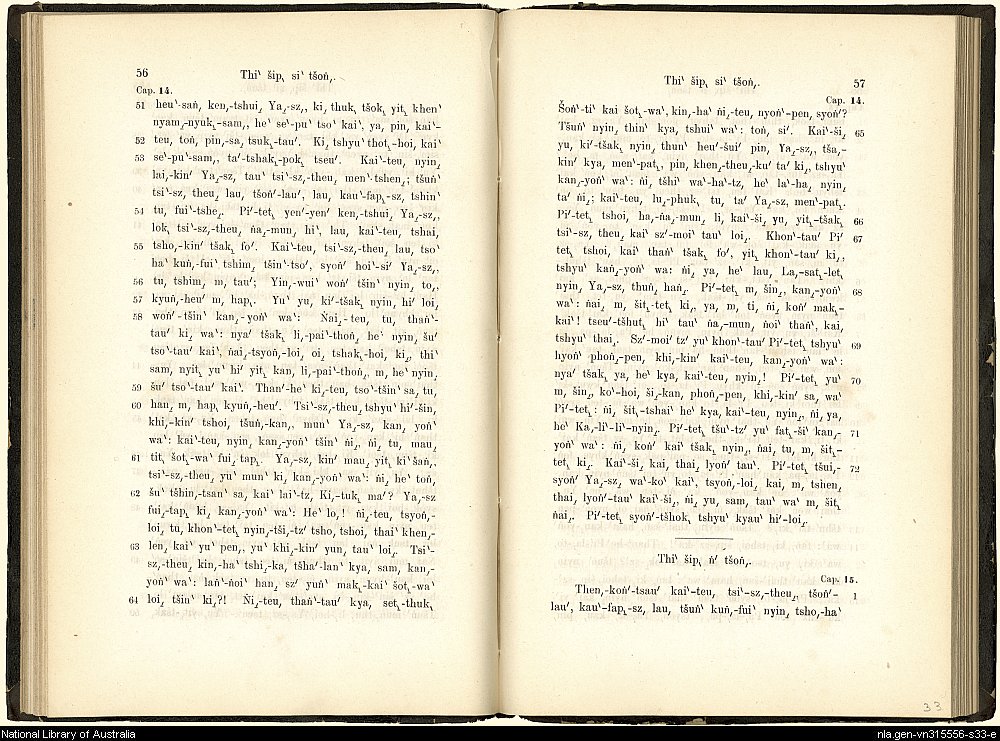 56
Thi‵ šip˛ si‵ tšoṅ,.
Cap. 14.
51 heu‵-saṅ, ken,-tshui˛ Ya˛-sz,, ki˛ thuk˛ tšok˛ yit˛ khen′
nyam˛-nyuk˛-sam,, he‵ se‵-pu‵ tso‵ kai‵, ya˛ pin, kai‵-
52 teu˛ toṅ, pin,-sa, tsuk˛-tau′. Ki˛ tshyu‵ thot˛-hoi, kai‵
53 se‵-pu‵-sam,, ta′-tshak˛-pok˛ tseu′. Kai‵-teu, nyin˛
lai,-kin′ Ya˛-sz, tau‵ tsi‵-sz,-theu˛ men‵-tshen˛; tšuṅ‵
tsi‵-sz, theu˛ lau, tšoṅ′-lau′, lau, kau‵-fap˛-sz, tshin‵
54 tu, fui‵-tshe˛. Pi′-tet˛ yen′-yen′ ken,-tshui˛ Ya˛-sz,,
lok˛ tsi‵-sz,-theu˛ ṅa˛-mun˛ hi‵, lau, kai‵-teu, tshai,
55 tsho,-kin′ tšak˛ fo′. Kai‵-teu, tsi‵-sz,-theu˛ lau, tso‵
ha‵ kuṅ,-fui‵ tshim˛ tšin‵-tso′, syoṅ′ hoi‵-si′ Ya˛-sz,,
56 tu, tshim˛ m˛ tau′; Yin,-wui‵ woṅ′ tšin‵ nyin˛ to,,
57 kyuṅ,-heu′ m˛ hap˛. Yu‵ yu, ki′-tšak˛ nyin˛ hi′ loi˛
58 woṅ′-tšin‵ kan˛-yoṅ‵ wa‵: Ṅai˛-teu, tu, thaṅ‵-
tau′ ki˛ wa‵: nya′ tšak˛ li˛-pai‵-thoṅ˛ he‵ nyin˛ šu′
tso‵-tau′ kai‵, ṅai˛-tsyoṅ,-loi˛ oi˛ tshak˛-hoi, ki˛, thi‵
sam, nyit˛ yu‵ hi′ yit˛ kan, li˛-pai‵-thoṅ˛, m˛ he‵ nyin˛
59 šu′ tso‵-tau′ kai‵. Than′-he‵ ki˛-teu, tso‵-tšin‵ sa, tu,
60 han˛ m˛ hap˛ kyuṅ,-heu′. Tsi‵-sz,-theu˛ tshyu‵ hi′-šin,
khi˛-kin′ tshoi, tšuṅ,-kan,, mun‵ Ya˛-sz, kan˛ yoṅ‵
wa‵: kai‵-teu, nyin˛ kan˛-yoṅ‵ tšin‵ ṅi˛, ṅi˛ tu, mau˛
61 tit˛ šot˛-wa‵ fui˛ tap˛. Ya˛-sz, kin′ mau˛ yit˛ ki‵ šaṅ,,
tsi‵-sz,-theu˛ yu‵ mun‵ ki˛ kan˛-yoṅ‵ wa‵: ṅi˛ he‵ toṅ,
62 šu‵ tšhin˛-tsan‵ sa, kai‵ lai‵-tz′, Ki,-tuk˛ ma′? Ya˛-sz
fui˛-tap˛ ki˛ kan˛-yoṅ‵ wa‵: He‵ lo,! ṅi˛-teu, tsyoṅ,-
loi˛ tu, khon‵-tet˛ nyin˛-tši˛-tz′ tsho, tshoi, thai‵ khen˛-
63 len˛ kai‵ yu‵ pen,, yu‵ khi˛-kin′ yun˛ tau‵ loi˛. Tsi‵-
sz,-theu˛ kin,-ha‵ tshi˛-ka, tšha′-lan‵ kya, sam, kan˛-
yoṅ‵ wa‵: laṅ‵-ṅoi‵ han˛ sz′ yuṅ‵ mak˛-kai‵ šot˛-wa‵
64 loi˛ tšin‵ ki˛?! Ṅi˛-teu, thaṅ‵-tau′ kya, set˛-thuk˛
Thi‵ šip˛ si‵ tšoṅ,.
57
Cap. 14.
Šoṅ‵-ti‵ kai šot˛-wa‵, kin,-ha‵ ṅi˛-teu, nyoṅ‵-pen, syoṅ′?
Tšuṅ‵ nyin˛ thin‵ kya, tshui‵ wa‵: toṅ, si′. Kai‵-ši˛ 65
yu, ki′-tšak˛ nyin˛ thun‵ heu′-šui′ pin, Ya˛-sz,, tša,-
kin′ kya, men‵-pat˛, pin, khen˛-theu˛-ku′ ta′ ki˛, tshyu‵
kan˛-yoṅ‵ wa‵: ṅi˛ tšhi‵ wa‵-ha‵-tz, he‵ la‵-ha˛ nyin˛
ta′ ṅi˛; kai‵-teu, lu˛-phuk˛ tu, ta′ Ya˛-sz, men‵-pat˛.
Pi′-tet˛ tshoi, ha,-ṅa˛-mun˛ li, kai‵-ši˛ yu, yit˛-tšak˛ 66
tsi‵-sz, theu˛ kai‵ sz′-moi‵ tau‵ loi˛. Khon‵-tau′ Pi′ 67
tet˛ tshoi, kai‵ thaṅ‵ tšak˛ fo′, yit˛ khon‵-tau′ ki˛,
tshyu‵ kaṅ˛-yoṅ‵ wa: ṅi˛ ya, he‵ lau, La,-sat˛-let˛
nyin˛ Ya˛-sz, thuṅ˛ haṅ˛. Pi′-tet˛ m˛ šin˛, kan˛-yoṅ‵ 68
wa‵: ṅai˛ m˛ šit˛-tet˛ ki˛, ya, m˛ ti, ṅi˛ koṅ′ mak˛-
kai‵! tseu′-tšhut˛ hi‵ tau‵ ṅa˛-mun˛ ṅoi‵ thaṅ‵, kai,
tshyu‵ thai˛. Sz′-moi‵ tz′ yu‵ khon‵-tau′ Pi′-tet˛ tshyu‵ 69
hyoṅ‵ phoṅ˛-pen, khi˛-kin′ kai‵-teu, kan˛-yoṅ‵ wa‵:
nya′ tšak˛ ya, he‵ kya, kai‵-teu, nyin˛! Pi′-tet˛ yu‵ 70
m˛ šin˛, ko‵-hoi, ši˛-kan, phoṅ˛-pen, khi˛-kin′ sa, wa‵
Pi′-tet˛: ṅi˛ šit˛-tshai‵ he‵ kya, kai‵-teu, nyin˛, ṅi˛ ya,
he‵ Ka,-li‵-li‵-nyin˛. Pi′-tet˛ tšu‵-tz′ yu‵ fat˛-ši‵ kan˛- 71
yoṅ‵ wa‵: ṅi˛ koṅ′ kai‵ tšak˛ nyin˛, ṅai˛ tu, m˛ šit˛-
tet˛ ki˛. Kai‵-ši˛ kai, thai˛ lyoṅ′ tau‵. Pi′-tet˛ tšui,- 72
syoṅ′ Ya˛-sz, wa‵-ko‵ kai‵, tsyoṅ,-loi˛ kai, m˛ tshen˛
thai˛ lyoṅ′-tau‵ kai‵-ši˛, ṅi˛ yu, sam, tau‵ wa‵ m˛ šit˛
ṅai˛. Pi′-tet˛ syoṅ′-tšhok˛ tshyu‵ kyau‵ hi′-loi˛.
Thi‵ šip˛ ṅ′ tšoṅ,.
Cap. 15.
Then,-koṅ′-tsau′ kai‵-teu, tsi‵-sz,-theu˛, tšoṅ′- 1
lau′, kau‵-fap˛-sz, lau, tšuṅ‵ kuṅ,-fui‵ nyin˛ tsho,-ha‵
33
National Library of Australia
nla.gen-vn315556-s33-e